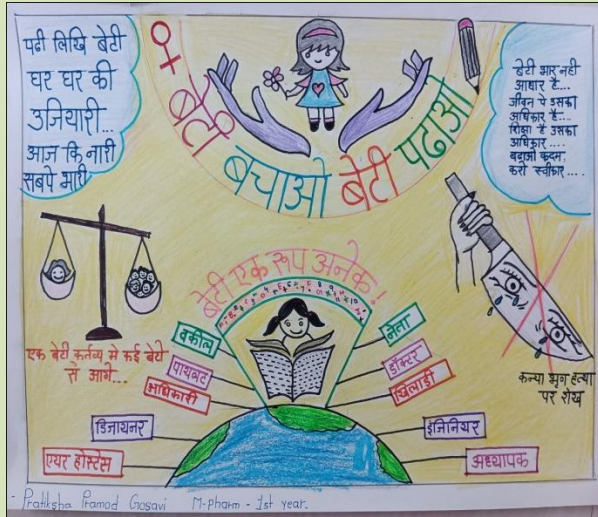 पढी लिखि बेटी
घर घर की
उजियारी...
आज कि नारी
सबपे भारी
बेटी बचाओ बेटी पढाओ
बेटी भार नही
आधार है...
जीवन पे उसका
अधिकार है...
शिक्षा है उसका
अधिकार....
बढाओ कदम
करो स्वीकार....
एक बेटी कर्तव्य मे कई बेटो
से आगे...
बेटी एक रूप अनेक!
वकील
पायलट
अधिकारी
डिजायनर
एयर होस्टेस
नेता
डॉक्टर
खिलाडी
इंजिनियर
अध्यापक
कन्या भ्रूण हत्या
पर रोख
- Pratiksha Pramod Gosavi M-Pharm - 1st year.